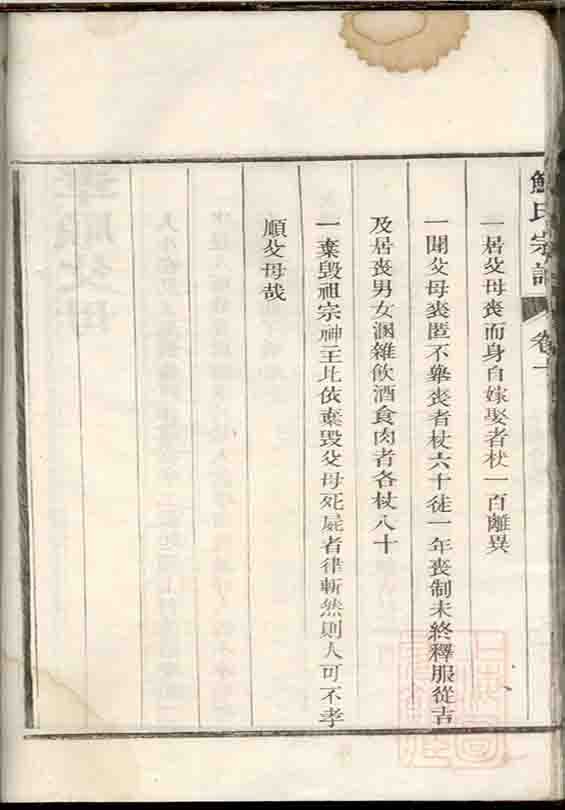 鮑氏宗譜 卷十
一居父母喪而身自嫁娶者杖一百離異
一聞父母喪匿不舉喪者杖六十徒一年喪制未終釋服從吉
及居喪男女溷雜飲酒食肉者各杖八十
一棄毀祖宗神主比依棄毀父母死屍者律斬然則人可不孝
順父母哉